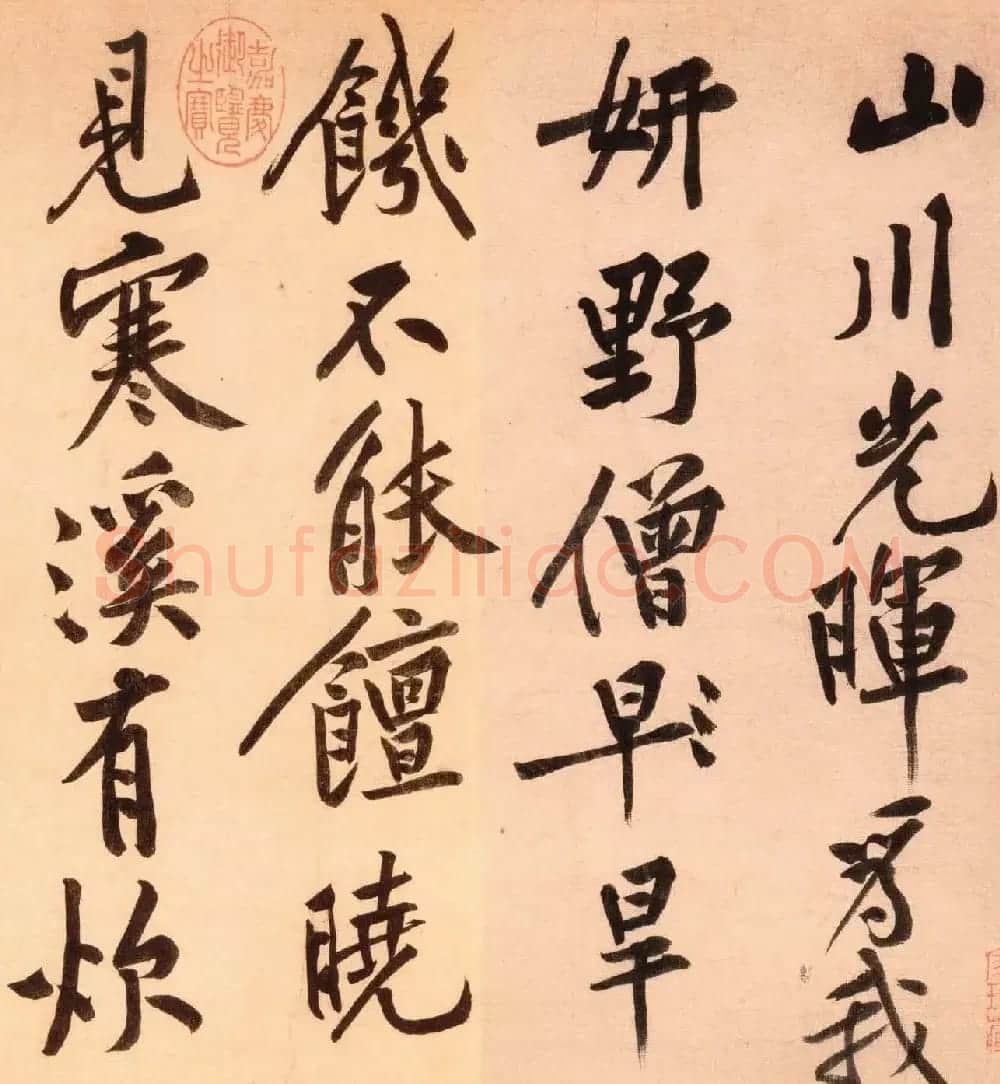 山川光暉爲我
妍野僧早旱
饑不能饘曉
見寒溪有炊
嘉慶御覽之寶
Shufaziliao.COM